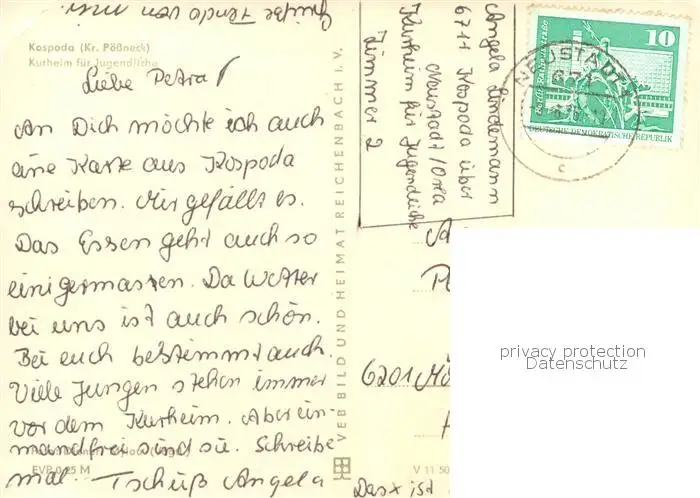 Kospoda (Kr. Pößneck)
Kurheim für Jugendliche
Liebe Petra!
An Dich möchte ich auch
eine Karte aus Kospoda
schreiben. Mir gefällt es.
Das Essen geht auch so
einigermassen. Da Wetter
bei uns ist auch schön.
Bei euch bestimmt auch.
Viele Jungen stehen immer
vor dem Kurheim. Aber ein-
mandfrei sind sie. Schreibe
mal. Tschüß Angela
EVP 0,25 M
VEB BILD UND HEIMAT REICHENBACH I. V.
V 11 50
Angela Lindemann
6711 Kospoda über
Neustadt/Orla
Kurheim für Jugendliche
Zimmer 2
10
DEUTSCHE DEMOKRATISCHE REPUBLIK
NEUSTADT
671
c
6201
Das ist
privacy protection
Datenschutz